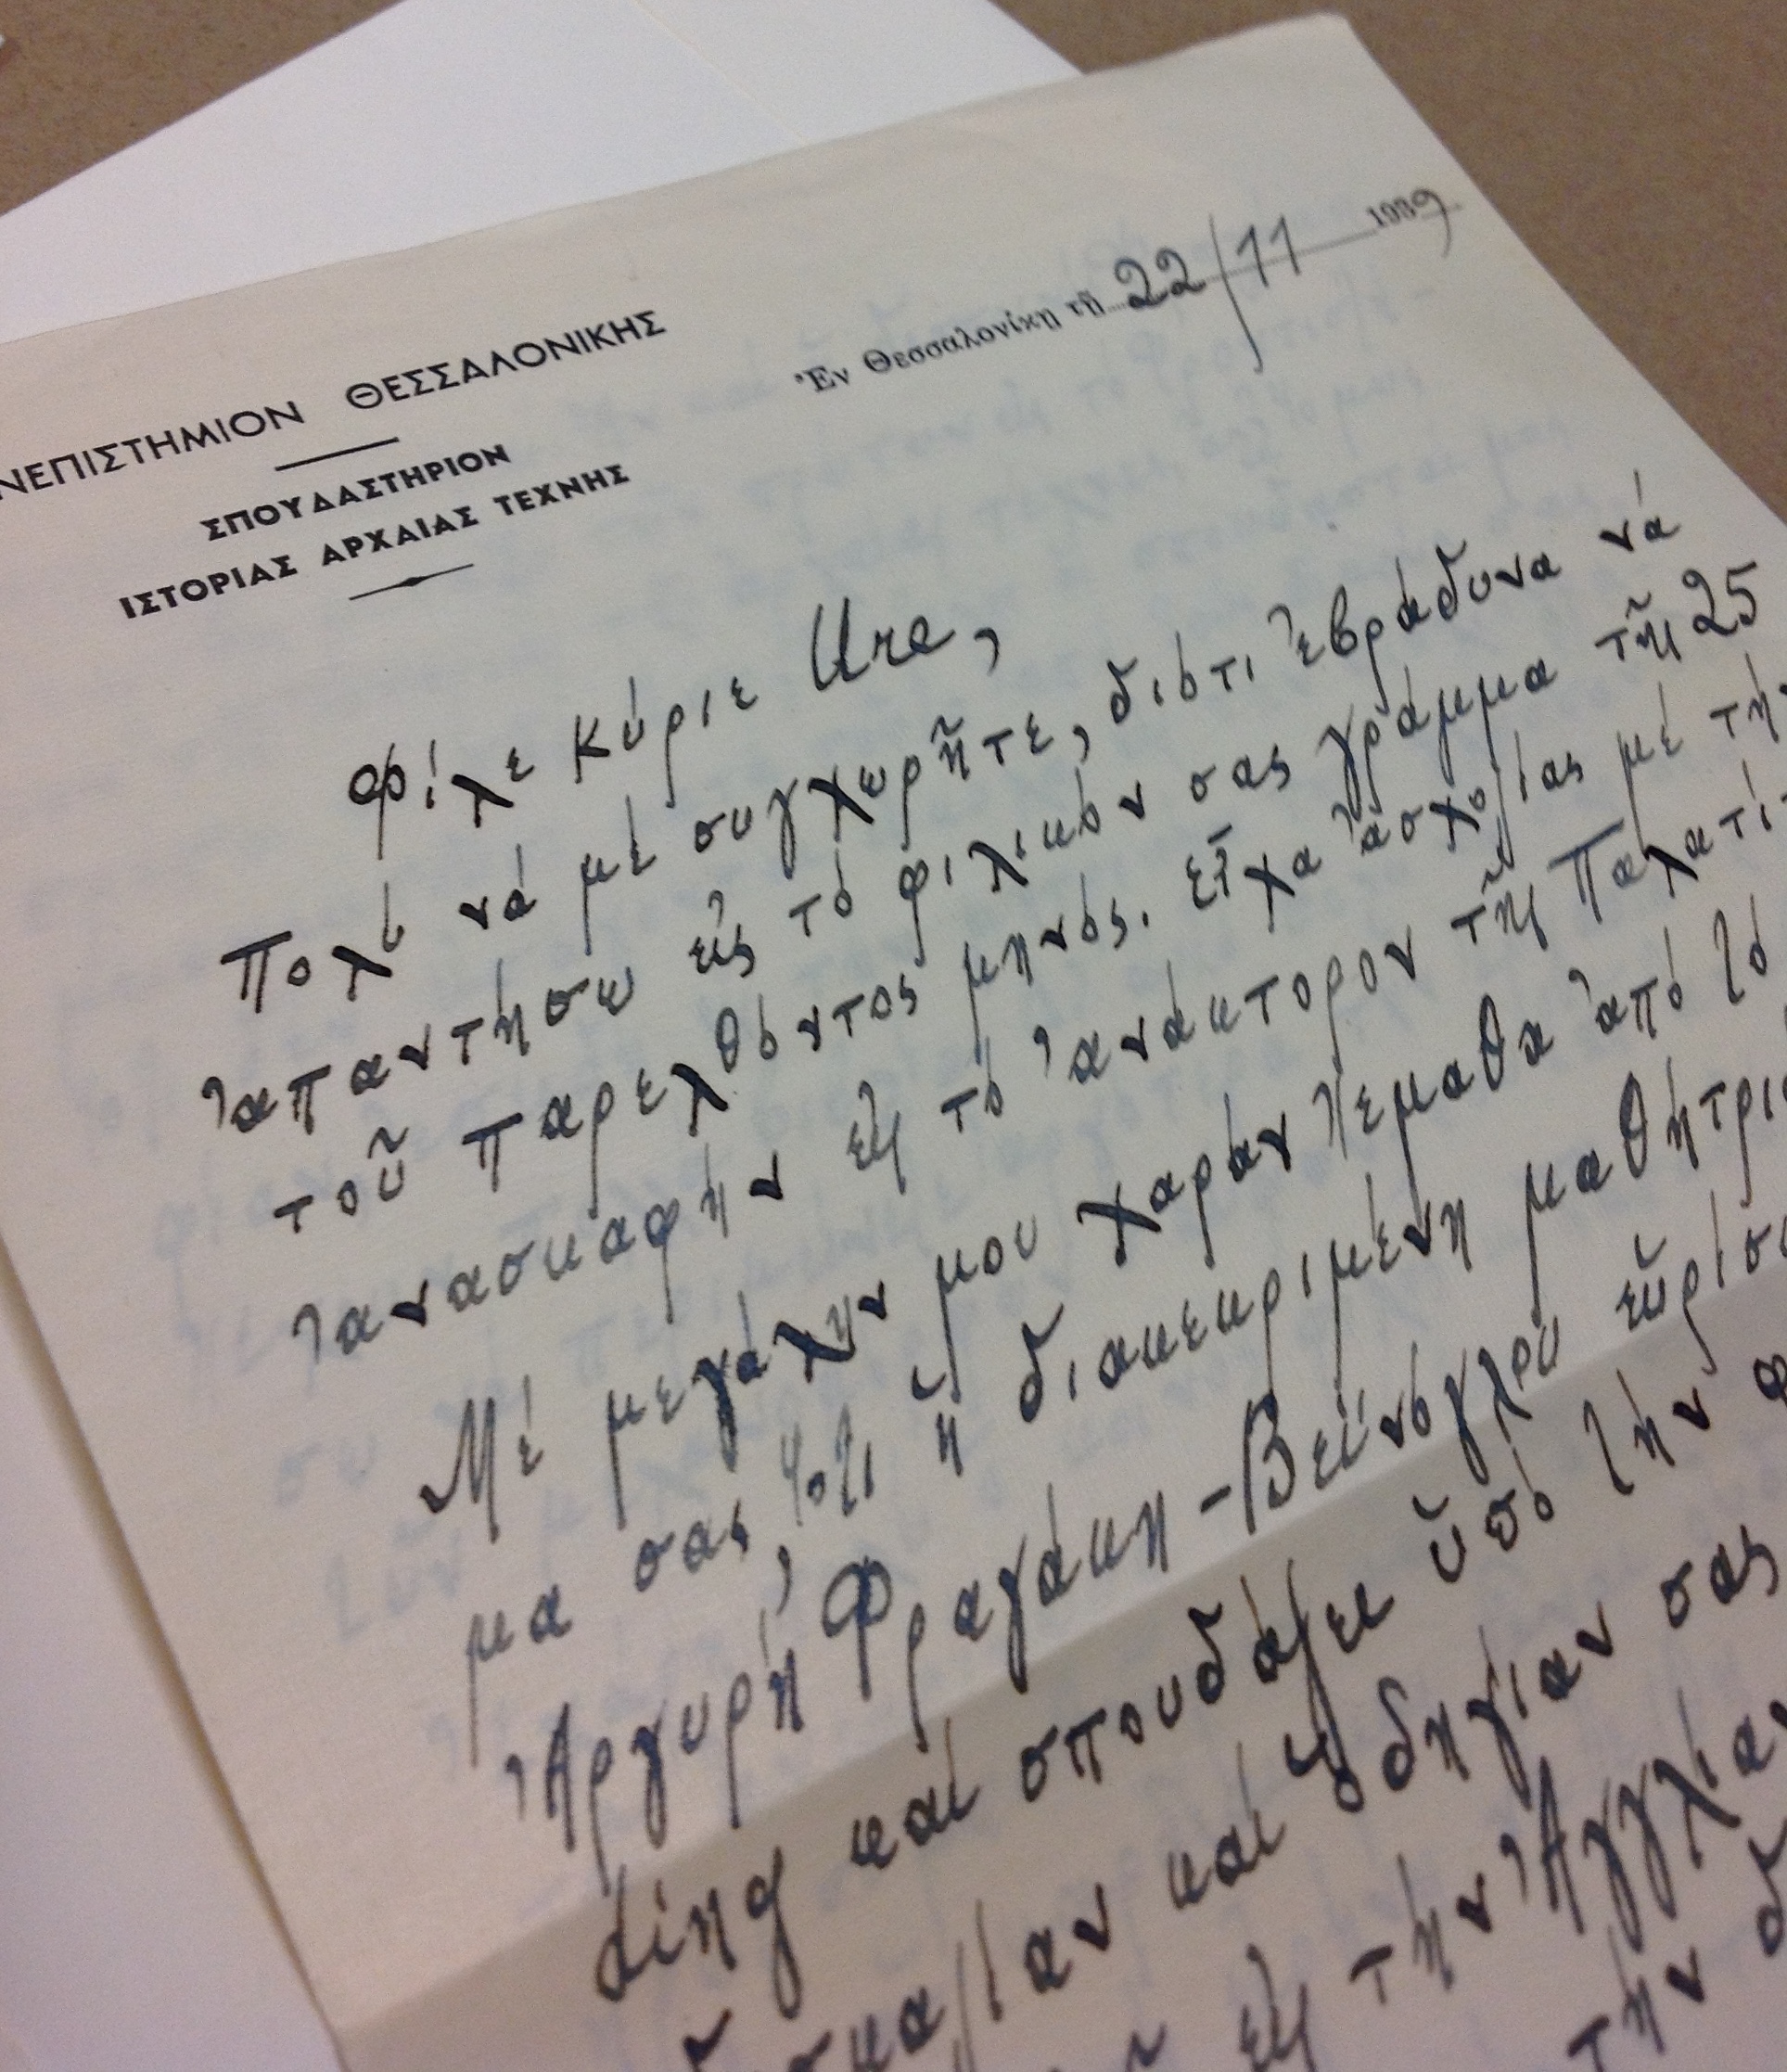 ΝΕΠΙΣΤΗΜΙΟΝ ΘΕΣΣΑΛΟΝΙΚΗΣ
ΣΠΟΥΔΑΣΤΗΡΙΟΝ
ΙΣΤΟΡΙΑΣ ΑΡΧΑΙΑΣ ΤΕΧΝΗΣ
Ἐν Θεσσαλονίκη τῇ 22/11 1939
Φίλε Κύριε Ure,
Πολὺ νά μέ συγχωρῆτε, διότι ἐβράδυνα νά
ἀπαντήσω εἰς τό φιλικόν σας γράμμα τῆς 25
τοῦ παρελθόντος μηνός. Εἶχα ἀσχολίας μέ τήν
ἀνασκαφήν εἰς τό ἀνάκτορον τῆς Παλατί
Μέ μεγάλην μου χαράν ἔμαθα ἀπό τό
μα σας, ὅτι ἡ διακεκριμένη μαθήτρια
Ἀργυρή Φραγάκη-Βεΐνόγλου εὑρίσ
ding καί σπουδάζει ὑπό τήν φ
δασκαλίαν καί ὁδηγίαν σας
εἰς τήν Ἀγγλίαν
τήν δ